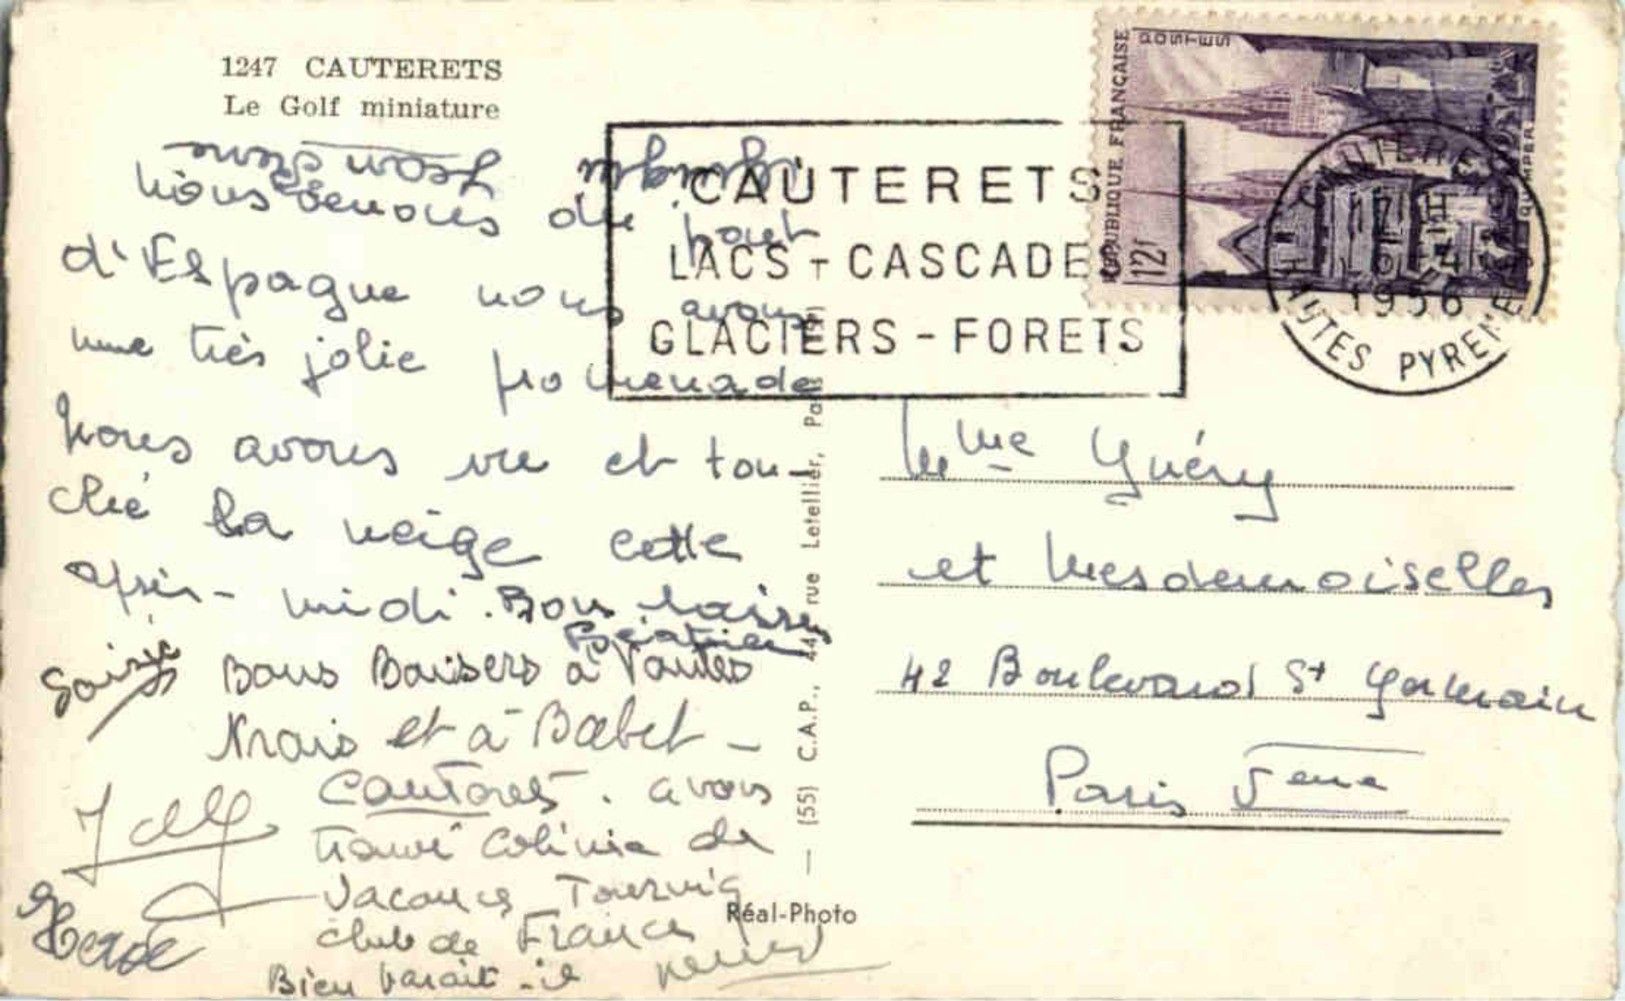 1247 CAUTERETS
Le Golf miniature
Jean Pierre
Nous venons du pont
d'Espagne nous avons
une très jolie promenade
Nous avons vu et tou-
ché la neige cette
après-midi. Bons baisers
Béatrice
Bons Baisers à Toutes
Trois et à Babet -
Cauterets. avons
trouvé Colonie de
Vacances Touring
club de France
Bien paraît-il
Hervé
— (55) C.A.P., 44, rue Letellier, Paris
Réal-Photo
CAUTERETS
LACS - CASCADES
GLACIERS - FORETS
REPUBLIQUE FRANÇAISE
POSTES
12f
QUIMPER
CAUTERETS
17H
4
1956
HAUTES PYRENEES
Mme Guéry
et Mesdemoiselles
42 Boulevard St Germain
Paris 5eme